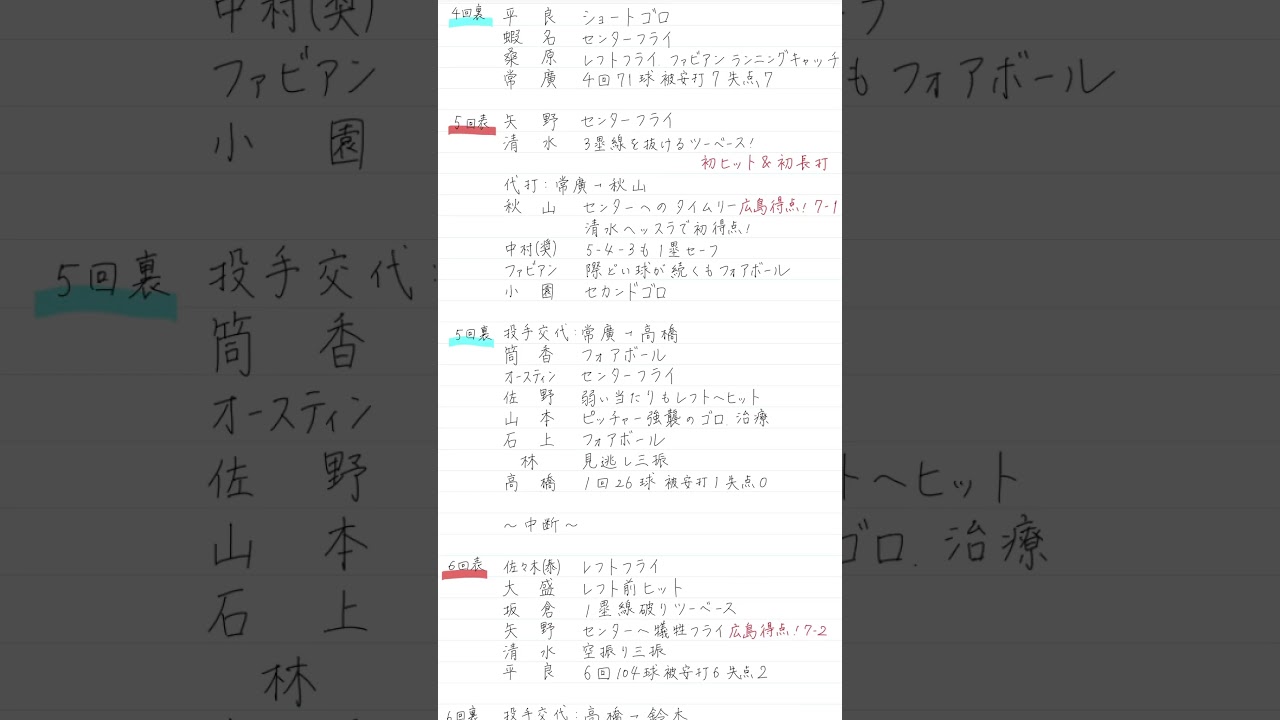 4回裏 平良 ショートゴロ
蝦名 センターフライ
桑原 レフトフライ ファビアン ランニングキャッチ
常廣 4回71球 被安打7 失点7
5回表 矢野 センターフライ
清水 3塁線を抜けるツーベース!
初ヒット&初長打
代打:常廣→秋山
秋山 センターへのタイムリー広島得点!7-1
清水ヘッスラで初得点!
中村(奨) 5-4-3も1塁セーフ
ファビアン 際どい球が続くもフォアボール
小園 セカンドゴロ
5回裏 投手交代:常廣→高橋
筒香 フォアボール
オースティン センターフライ
佐野 弱い当たりもレフトへヒット
山本 ピッチャー強襲のゴロ.治療
石上 フォアボール
林 見逃し三振
高橋 1回26球 被安打1 失点0
〜中断〜
6回表 佐々木(泰) レフトフライ
大盛 レフト前ヒット
坂倉 1塁線破りツーベース
矢野 センターへ犠牲フライ広島得点!7-2
清水 空振り三振
平良 6回104球 被安打6 失点2
6回裏 投手交代:高橋→鈴木
中村(奨)
ファビアン
もフォアボール
小園
5回裏 投手交代:
筒香
オースティン
佐野
トへヒット
山本
ゴロ.治療
石上
林